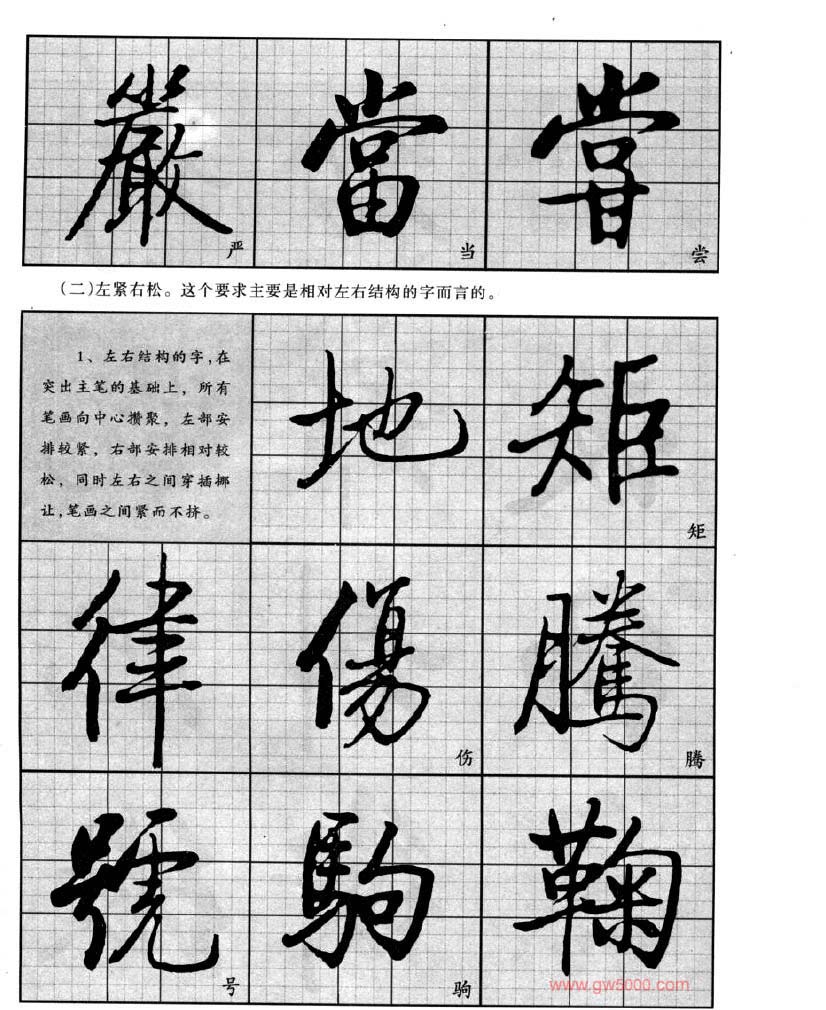 嚴 當 嘗
严 当 尝
(二)左紧右松。这个要求主要是相对左右结构的字而言的。
1、左右结构的字,在
突出主笔的基础上,所有
笔画向中心攒聚,左部安
排较紧,右部安排相对较
松,同时左右之间穿插挪
让,笔画之间紧而不挤。
地 矩
矩
律 傷 騰
伤 腾
號 駒 鞠
号 驹
www.gw5000.com